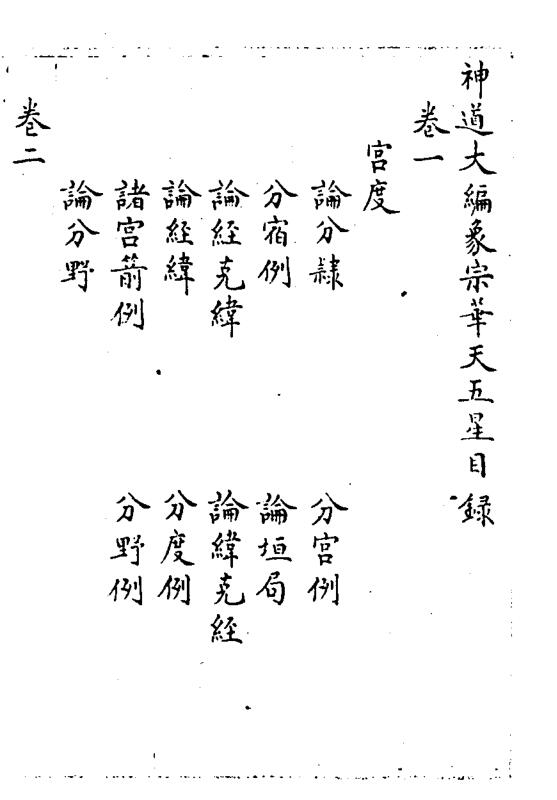 神道大編象宗華天五星目録
卷一
宮度
論分隸 分宮例
分宿例 論垣局
論経克緯 論緯克経
論経緯 分度例
諸宮箭例 分野例
論分野
卷二